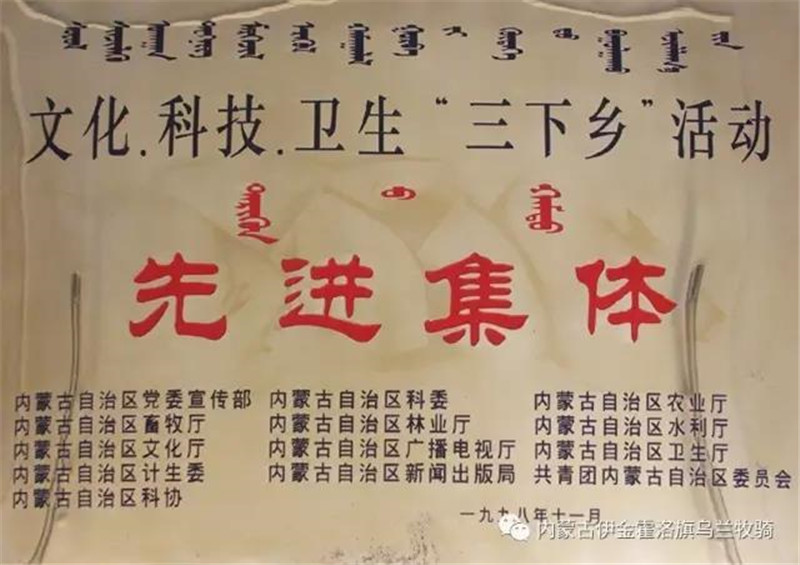 文化.科技.卫生“三下乡”活动
先进集体
内蒙古自治区党委宣传部 内蒙古自治区科委 内蒙古自治区农业厅
内蒙古自治区畜牧厅 内蒙古自治区林业厅 内蒙古自治区水利厅
内蒙古自治区文化厅 内蒙古自治区广播电视厅 内蒙古自治区卫生厅
内蒙古自治区计生委 内蒙古自治区新闻出版局 共青团内蒙古自治区委员会
内蒙古自治区科协
一九九八年十一月
内蒙古伊金霍洛旗乌兰牧骑